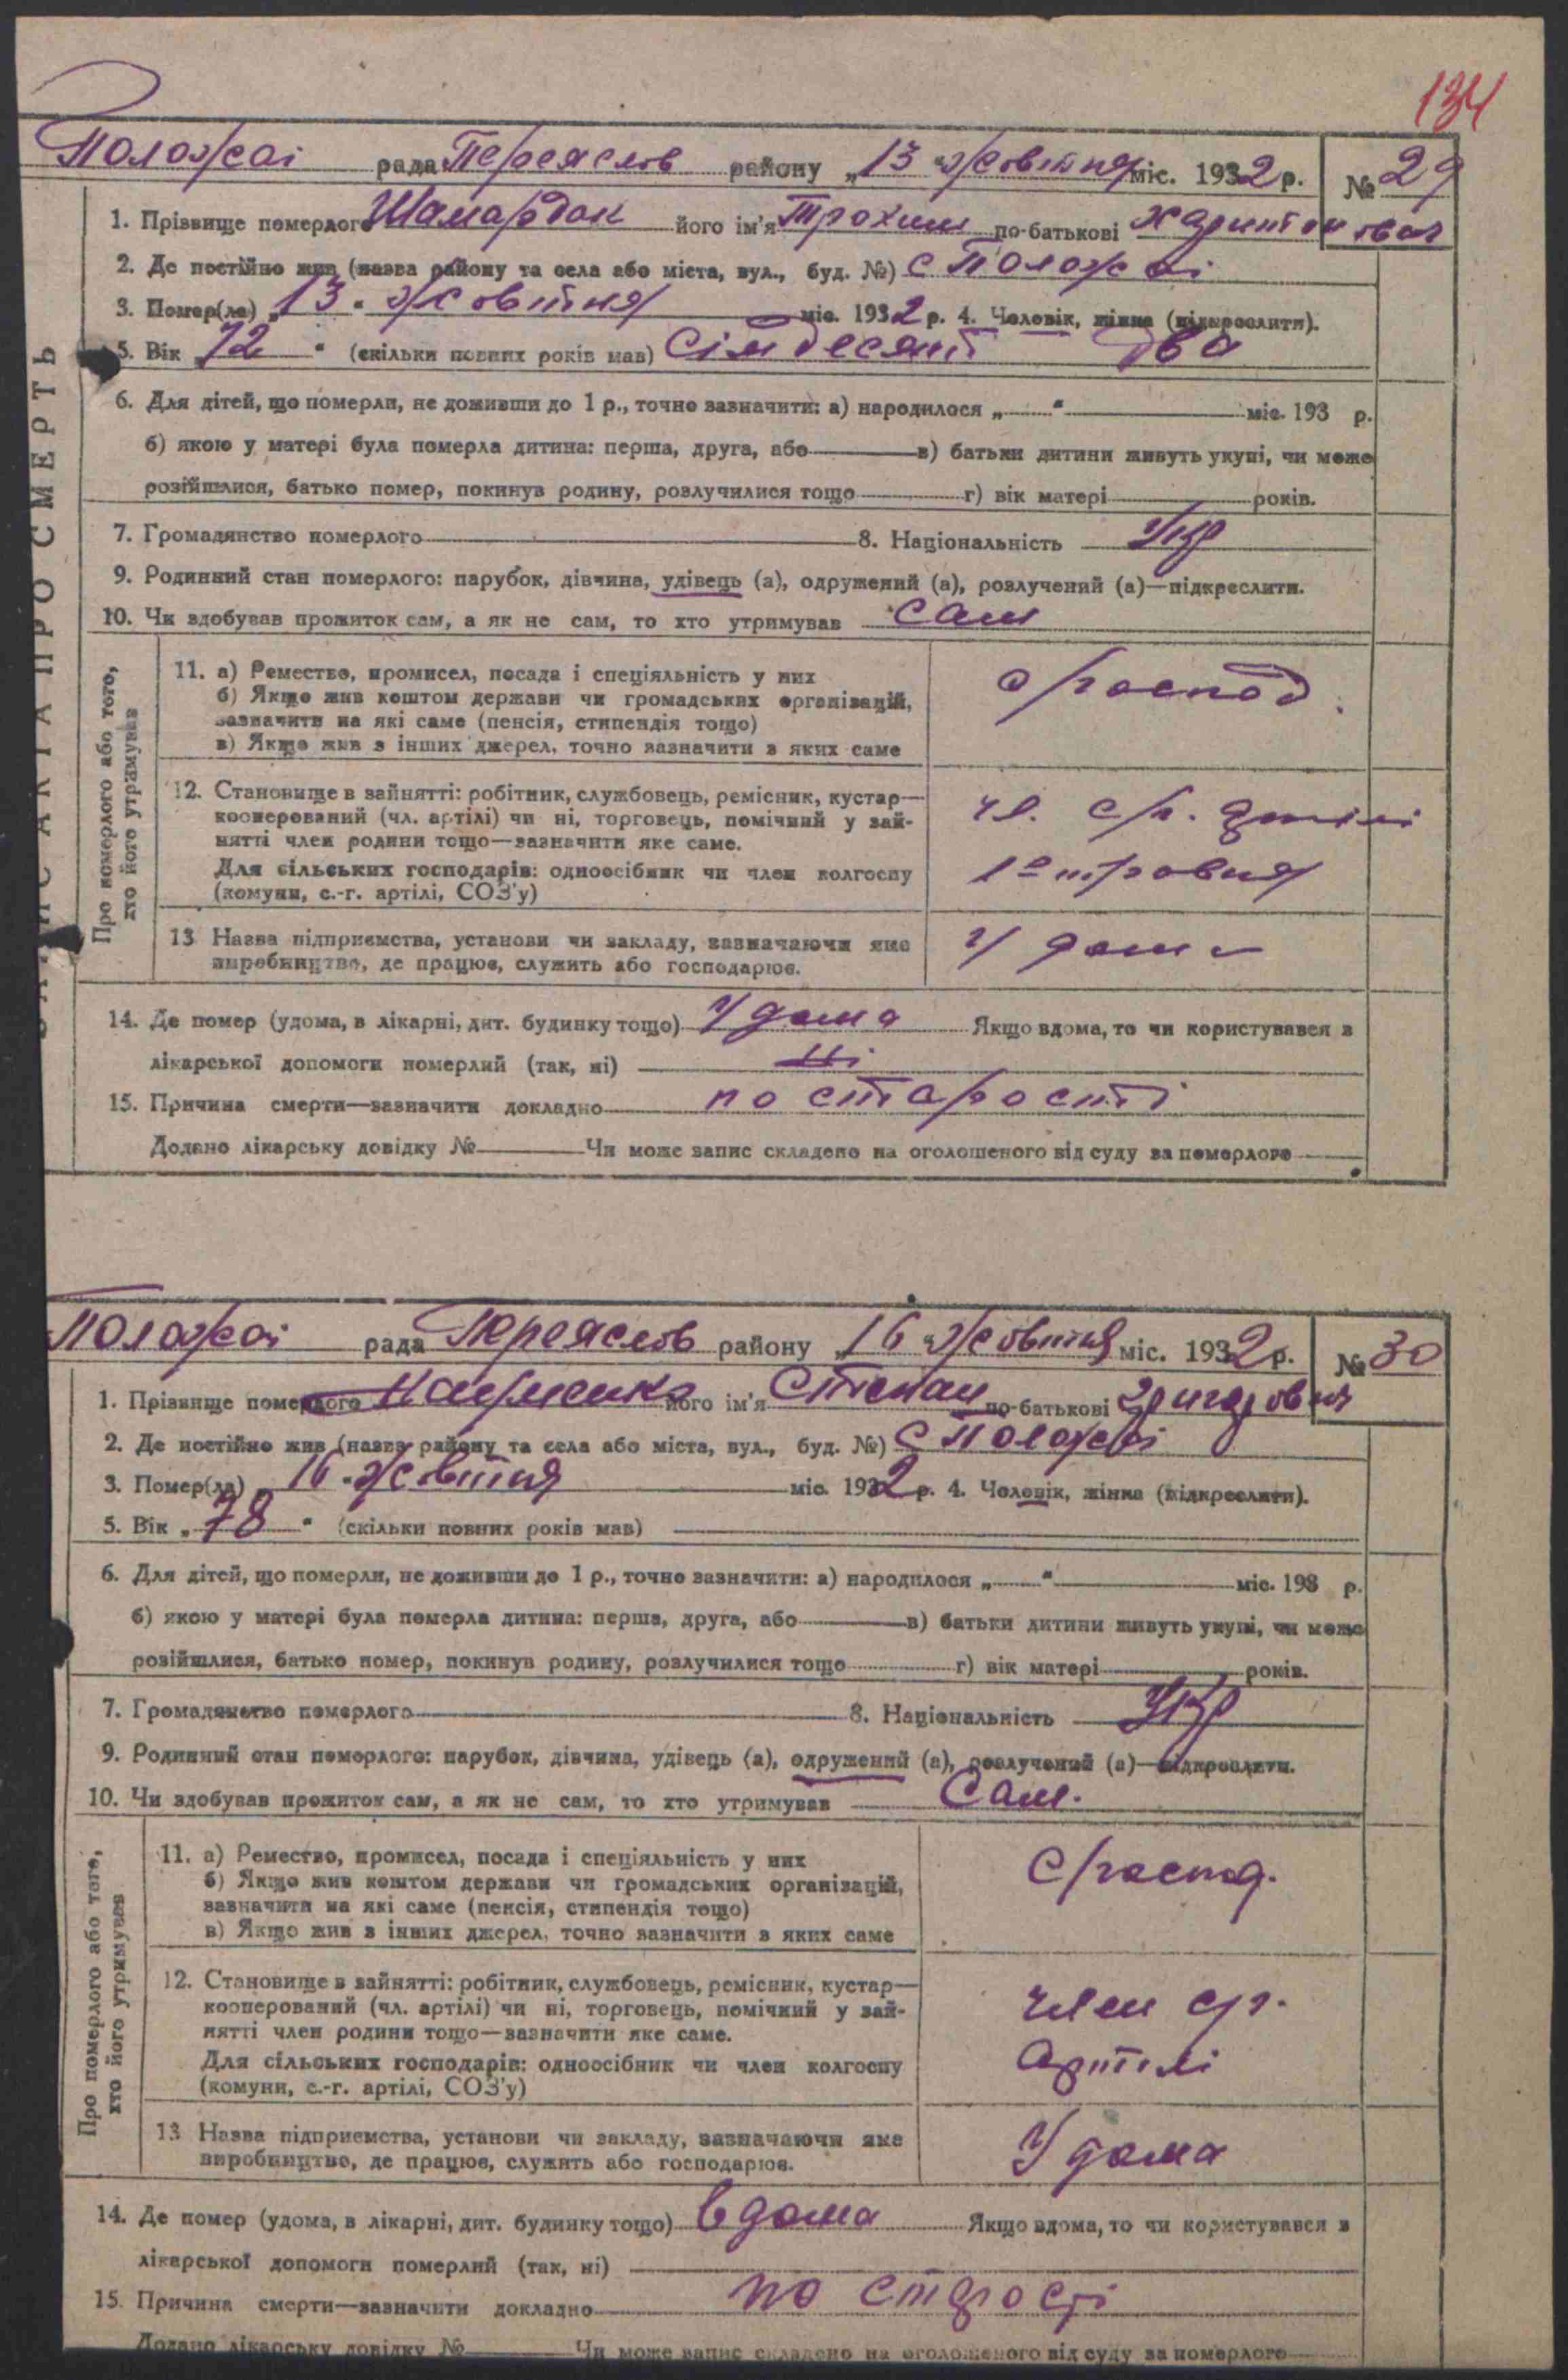 134
Положаї рада Переяслов району „13 “ жовтня міс. 1932 р. № 29
1. Прізвище померлого Шамардак його ім'я Трохим по-батькові Харитонович
2. Де постійно жив (назва району та села або міста, вул., буд. №) с Положаї
3. Помер(ла) „13 “ жовтня міс. 1932 р. 4. Человік, жінка (підкреслити).
5. Вік „72 “ (скільки повних років мав) Сімдесят два
6. Для дітей, що померли, не доживши до 1 р., точно зазначити: а) народилося „ “ міс. 193 р.
б) якою у матері була померла дитина: перша, друга, або в) батьки дитини живуть укупі, чи може
розійшлися, батько помер, покинув родину, розлучилися тощо г) вік матері років.
7. Громадянство померлого 8. Національність Укр
9. Родинний стан померлого: парубок, дівчина, удівець (а), одружений (а), розлучений (а)—підкреслити.
10. Чи здобував прожиток сам, а як не сам, то хто утримував Сам
ЗАПИС АКТА ПРО СМЕРТЬ
Про померлого або того, хто його утримував
11. а) Ремество, промисел, посада і спеціяльність у них
б) Якщо жив коштом держави чи громадських організацій,
зазначити на які саме (пенсія, стипендія тощо)
в) Якщо жив з інших джерел, точно зазначити з яких саме
с/господ.
12. Становище в зайнятті: робітник, службовець, ремісник, кустар—
кооперований (чл. артілі) чи ні, торговець, помічний у зай-
нятті член родини тощо—зазначити яке саме.
Для сільських господарів: одноосібник чи член колгоспу
(комуни, с.-г. артілі, СОЗ'у)
чл. с/г. артілі
1е травня
13 Назва підприємства, установи чи закладу, зазначаючи яке
виробництво, де працює, служить або господарює.
У дома
14. Де помер (удома, в лікарні, дит. будинку тощо) У дома Якщо вдома, то чи користувався з
лікарської допомоги померлий (так, ні) ні
15. Причина смерти—зазначити докладно по старості
Додано лікарську довідку № Чи може запис складено на оголошеного від суду за померлого
Положаї рада Переяслов району „16 “ жовтня міс. 1932 р. № 30
1. Прізвище померлого його ім'я Степан по-батькові Григорович
2. Де постійно жив (назва району та села або міста, вул., буд. №) С Положаї
3. Помер(ла) „16 “ жовтня міс. 1932 р. 4. Человік, жінка (підкреслити).
5. Вік „78 “ (скільки повних років мав)
6. Для дітей, що померли, не доживши до 1 р., точно зазначити: а) народилося „ “ міс. 193 р.
б) якою у матері була померла дитина: перша, друга, або в) батьки дитини живуть укупі, чи може
розійшлися, батько помер, покинув родину, розлучилися тощо г) вік матері років.
7. Громадянство померлого 8. Національність Укр
9. Родинний стан померлого: парубок, дівчина, удівець (а), одружений (а), розлучений (а)—підкреслити.
10. Чи здобував прожиток сам, а як не сам, то хто утримував Сам.
Про померлого або того, хто його утримував
11. а) Ремество, промисел, посада і спеціяльність у них
б) Якщо жив коштом держави чи громадських організацій,
зазначити на які саме (пенсія, стипендія тощо)
в) Якщо жив з інших джерел, точно зазначити з яких саме
С/госпд.
12. Становище в зайнятті: робітник, службовець, ремісник, кустар—
кооперований (чл. артілі) чи ні, торговець, помічний у зай-
нятті член родини тощо—зазначити яке саме.
Для сільських господарів: одноосібник чи член колгоспу
(комуни, с.-г. артілі, СОЗ'у)
член с/г.
артілі
13 Назва підприємства, установи чи закладу, зазначаючи яке
виробництво, де працює, служить або господарює.
У дома
14. Де помер (удома, в лікарні, дит. будинку тощо) в дома Якщо вдома, то чи користувався з
лікарської допомоги померлий (так, ні)
15. Причина смерти—зазначити докладно по старості
Додано лікарську довідку № Чи може запис складено на оголошеного від суду за померлого